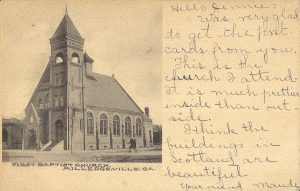 Hello Jennie:
Was very glad
to get the post
cards from you.
This is the
church I attend.
It is much prettier
inside than out
side.
I think the
buildings in
Scotland are
beautiful
Your friend Maude
FIRST BAPTIST CHURCH,
MILLEDGEVILLE, GA.